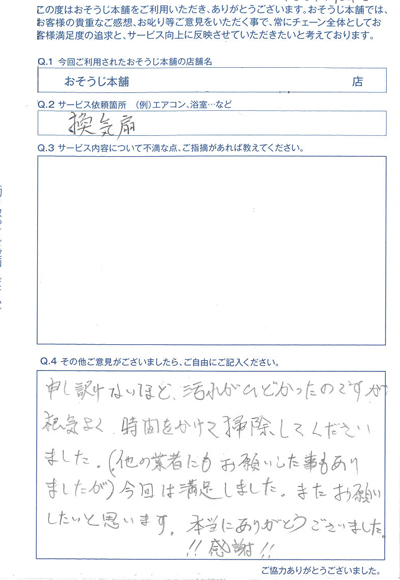 この度はおそうじ本舗をご利用いただき、ありがとうございます。おそうじ本舗では、
お客様の貴重なご感想、お叱り等ご意見をいただく事で、常にチェーン全体としてお
客様満足度の追求と、サービス向上に反映させていただきたいと考えております。
Q.1 今回ご利用されたおそうじ本舗の店舗名
おそうじ本舗 店
Q.2 サービス依頼箇所 （例）エアコン、浴室…など
換気扇
Q.3 サービス内容について不満な点、ご指摘があれば教えてください。
Q.4 その他ご意見がございましたら、ご自由にご記入ください。
申し訳けないほど、汚れがひどかったのですが
私気よく 時間をかけて掃除してください
ました。（他の業者にもお願いした事もあり
ましたが）今回は満足しました。またお願い
したいと思います。本当にありがとうございました。
!!感謝!!
ご協力ありがとうございました。